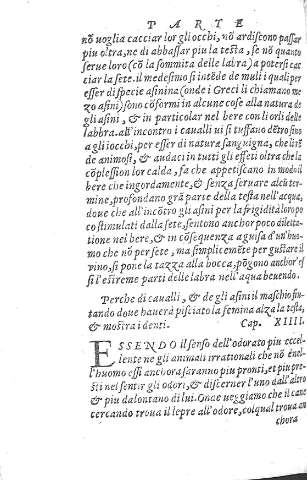 PARTE
nō uoglia cacciar lor gli occhi, nō ardiscono passar
piu oltra, ne di abbassar piu la testa, se nō quanto
serue loro (cō la sommita delle labra) a potersi cac
ciar la sete. il medesimo si intēde de muli i quali per
esser di specie asinina (onde i Greci li chiamano me
zo asini) sono cōformi in alcune cose alla natura de
gli asini, & in particolar nel bere con li orli delle
labbra. all'incontro i caualli ui si tuffano dētro fino
a gli iocchi, per esser di natura sanguigna, che li rē
de animosi, & audaci in tutti gli effeti oltra che la
cōplession lor calda, fa che appetiscano in modo il
bere che ingordamente, & senza seruare alcū ter-
mine, profondano grā parte della testa nell'acqua,
doue che all'incōtro gli asini per la frigidità loro po
co stimulati dalla sete, sentono anchor poco diletta-
tione nel bere, & in cōsequenza a guisa d'un'huo
mo che nō per sete, ma simplicemēte per gustare il
uino, si pone la tazza alla bocca, pōgono anchor' es
si l'estreme parti delle labra nell'aqua beuendo.
Perche di caualli, & de gli asini il maschio fiu-
tando doue hauerà pisciato la femina alza la testa,
& mostra i denti. Cap. XIIII.
ESSENDO il senso dell'odorato piu eccel-
lente ne gli animali irrationali che nō ē nel-
l'huomo essi anchora saranno piu pronti, et piu pre-
sti nel sentir gli odori, & discerner l'uno dall'altro
& piu da lontano di lui. Onde ueggiamo che il cane
cercando troua il lepre all'odore, col qual troua an
chora